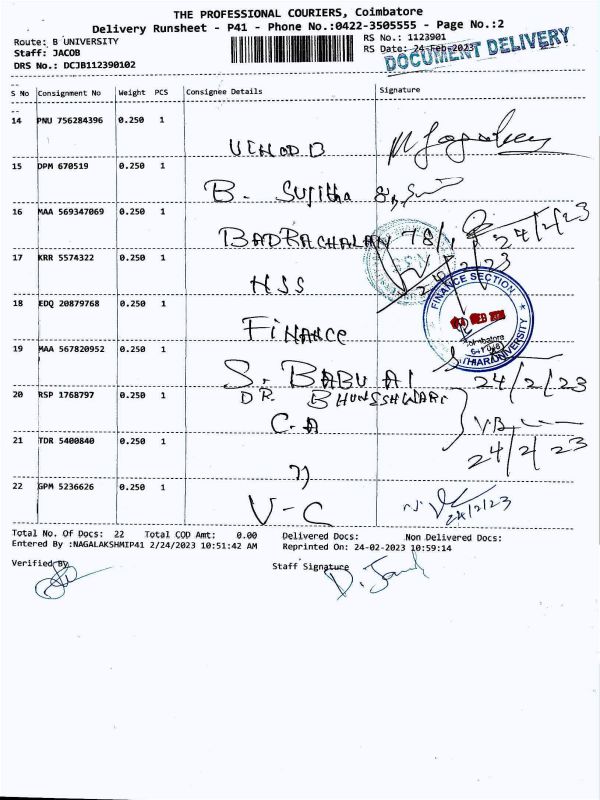 THE PROFESSIONAL COURIERS, Coimbatore
Delivery Runsheet - P41 - Phone No.:0422-3505555 - Page No.:2
Route: B UNIVERSITY
RS No.: 1123901
Staff: JACOB
RS Date: 24-Feb-2023
DOCUMENT DELIVERY
DRS No.: DCJB112390102
S No Consignment No Weight PCS Consignee Details Signature
14 PNU 756284396 0.250 1
15 DPM 670519 0.250 1
B. Sujitha
16 MAA 569347069 0.250 1
BADRACHALAM 78/1 24/2/23
17 KRR 5574322 0.250 1
HSS
FINANCE SECTION
18 EDQ 20879768 0.250 1
FINANCE
Coimbatore
19 MAA 567820952 0.250 1
S. BABU AI 24/2/23
20 RSP 1768797 0.250 1
DR. BHUNESHWARI
C.A
21 TDR 5400840 0.250 1
24/2/23
22 GPM 5236626 0.250 1
V-C 24/2/23
Total No. Of Docs: 22 Total COD Amt: 0.00 Delivered Docs: Non Delivered Docs:
Entered By :NAGALAKSHMIP41 2/24/2023 10:51:42 AM Reprinted On: 24-02-2023 10:59:14
Verified By
Staff Signature